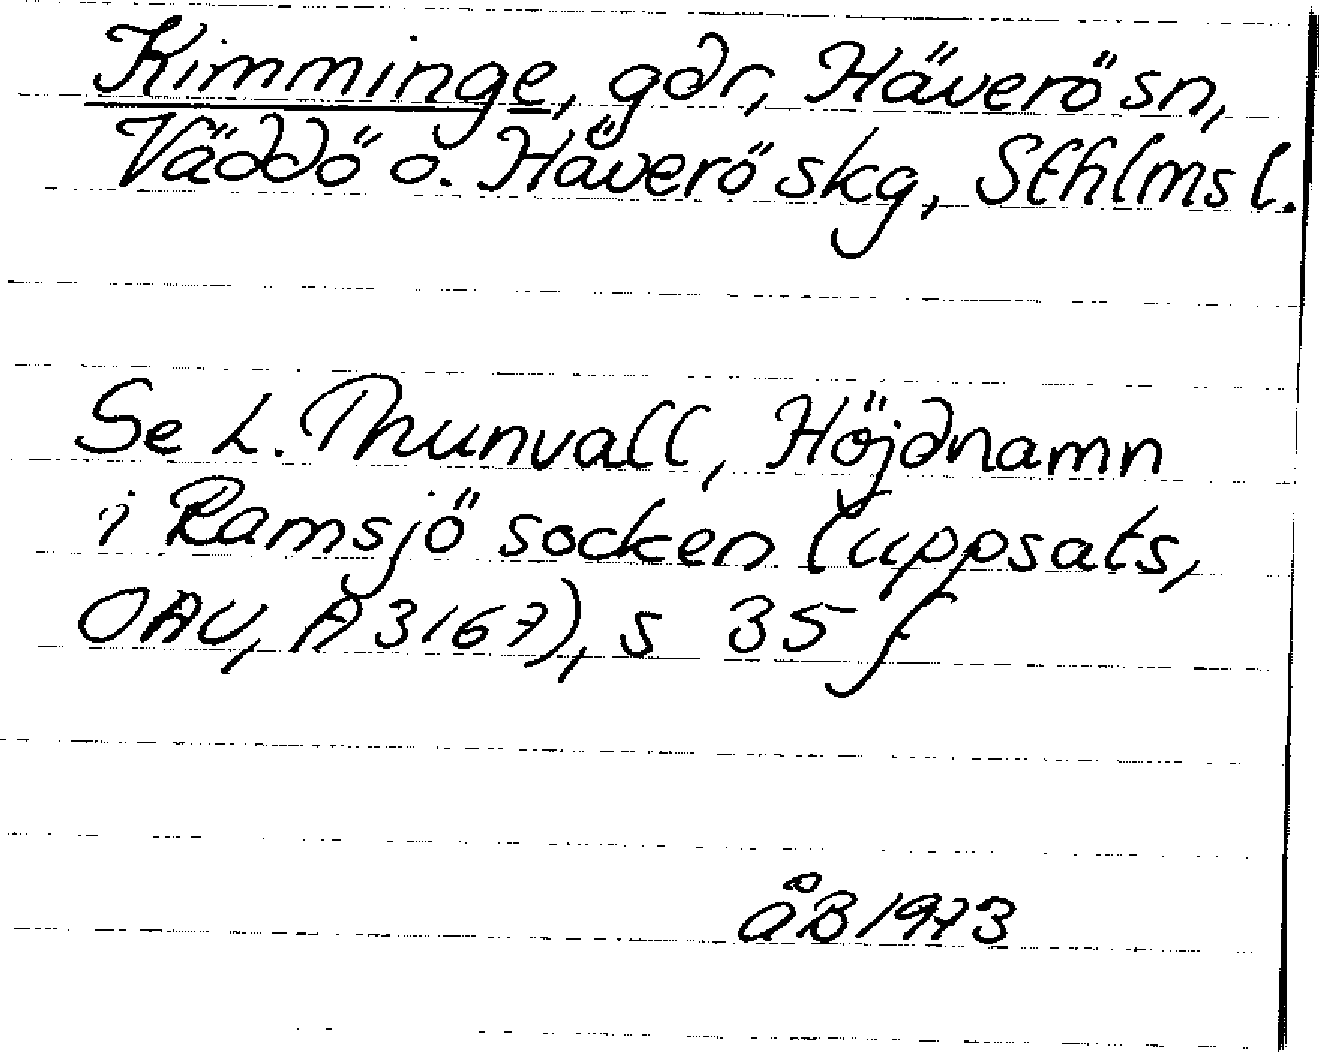 Kimminge, gdr, Häverö sn,
Väddö o. Häverö skg, Sthlms l.
Se L. Thunvall, Höjdnamn
i Ramsjö socken (uppsats,
OAU, A 3167), s 35 f
ÅB 1973